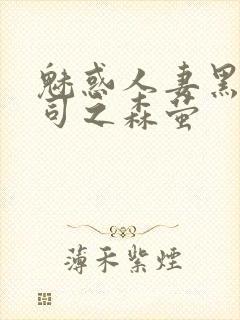 魅惑人妻黑
司之森萤
薄禾紫煙